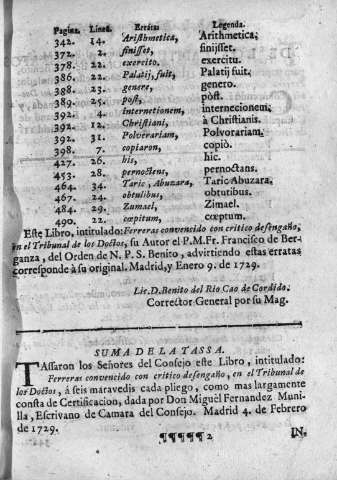 Pagina. Linea. Erratas Legenda.
342. 14. Aristhmetica, Arithmetica;
372. 2. finisset, sinisset.
378. 22. exercito. exercitu.
386. 22. Palatij, suit, Palatij fuit.
388. 23. genere, genero.
389. 25. póst, pòst.
392. 4. internetionem, internecionem;
392. 12. Christiani, à Christianis.
392. 31. Polverariam, Polvorariam;
398. 7. copiaron, copiò.
427. 26. his, hic.
453. 28. pernoctens, pernoctans.
464. 34. Taric, Abuzara, Taric Abuzara,
467. 24. obtulibus, obtutibus.
484. 29. Zumael, Zimael.
490. 22. cœpitum, cœptum.
Este Libro, intitulado: Ferreras convencido con critico desengaño,
en el Tribunal de los Doctos, su Autor el P.M.Fr. Francisco de Ber-
ganza, del Orden de N. P. S. Benito, advirtiendo estas erratas
corresponde à su original. Madrid, y Enero 9. de 1729.
Lic. D. Benito del Rio Cao de Cordido.
Corrector General por su Mag.
SUMA DE LA TASSA.
TAssaron los Señores del Consejo este Libro, intitulado:
Ferreras convencido con critico desengaño, en el Tribunal de
los Doctos, á seis maravedis cada pliego, como mas largamente
consta de Certificacion, dada por Don Miguèl Fernandez Muni-
lla, Escrivano de Camara del Consejo. Madrid 4. de Febrero
de 1729.
¶¶¶¶¶ 2 IN.